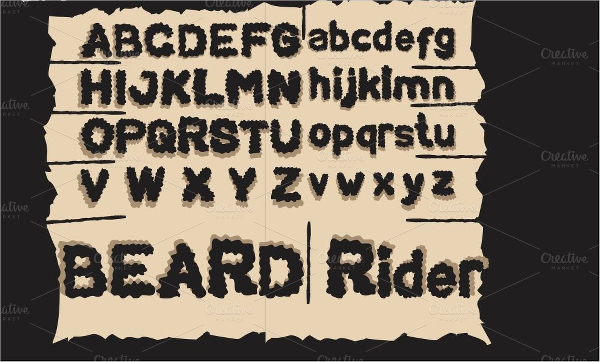 ABCDEFG abcdefg
HIJKLMN hijklmn
OPQRSTU opqrstu
VWXYZ vwxyz
BEARD Rider
Creative
MARKET